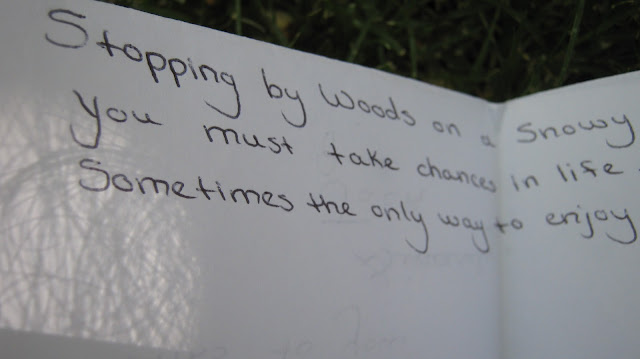 Stopping by Woods on a Snowy
You must take chances in life
Sometimes the only way to enjoy